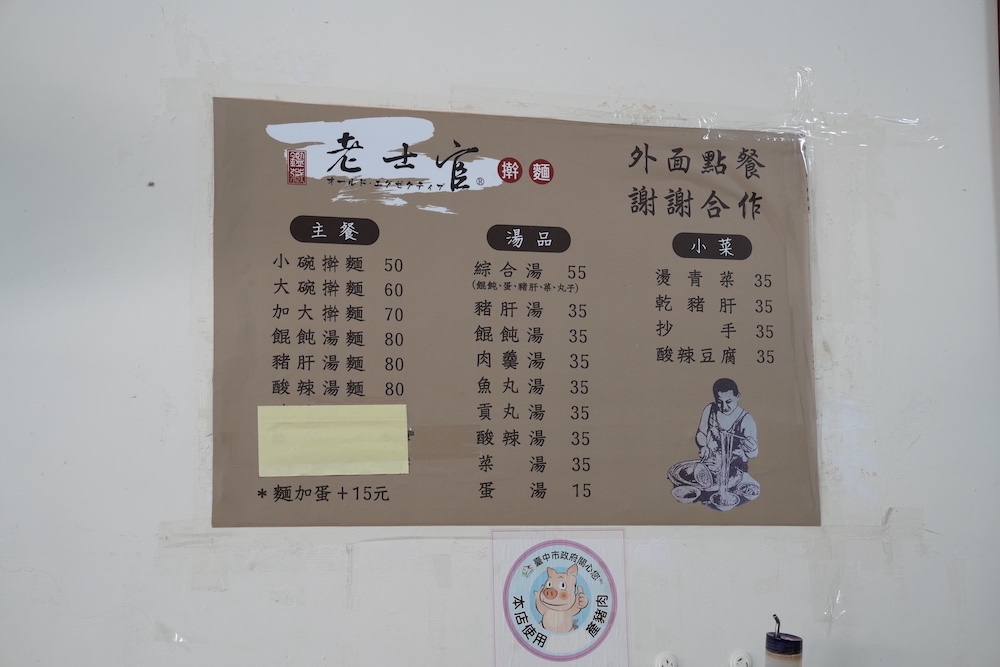 老士官
オールド・エグゼクティブ
®
擀麵
外面點餐
謝謝合作
主餐
小碗擀麵 50
大碗擀麵 60
加大擀麵 70
餛飩湯麵 80
豬肝湯麵 80
酸辣湯麵 80
*麵加蛋+15元
湯品
綜合湯 55
(餛飩、蛋、豬肝、菜、丸子)
豬肝湯 35
餛飩湯 35
肉羹湯 35
魚丸湯 35
貢丸湯 35
酸辣湯 35
菜湯 35
蛋湯 15
小菜
燙青菜 35
乾豬肝 35
抄手 35
酸辣豆腐 35
臺中市政府關心您
本店使用
產豬肉